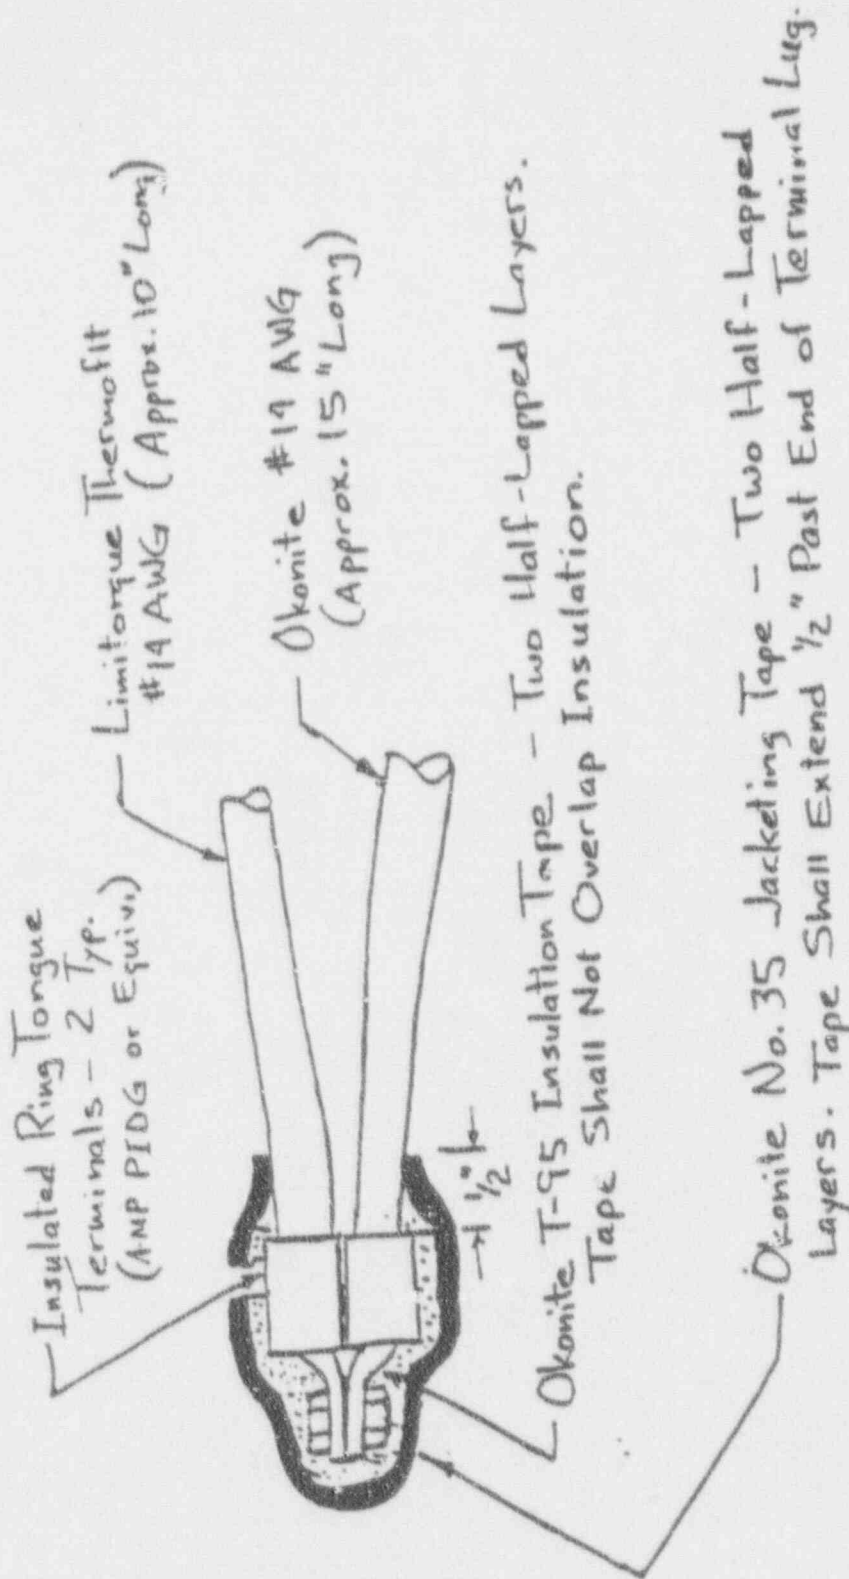 Insulated Ring Tongue
Terminals - 2 Typ.
(AMP PIDG or Equiv.)
Limitorque Thermofit
#14 AWG (Approx. 10" Long)
Okonite #14 AWG
(Approx. 15" Long)
1/2"
Okonite T-95 Insulation Tape - Two Half-Lapped Layers.
Tape Shall Not Overlap Insulation.
Okonite No. 35 Jacketing Tape - Two Half-Lapped
Layers. Tape Shall Extend 1/2" Past End of Terminal Lug.